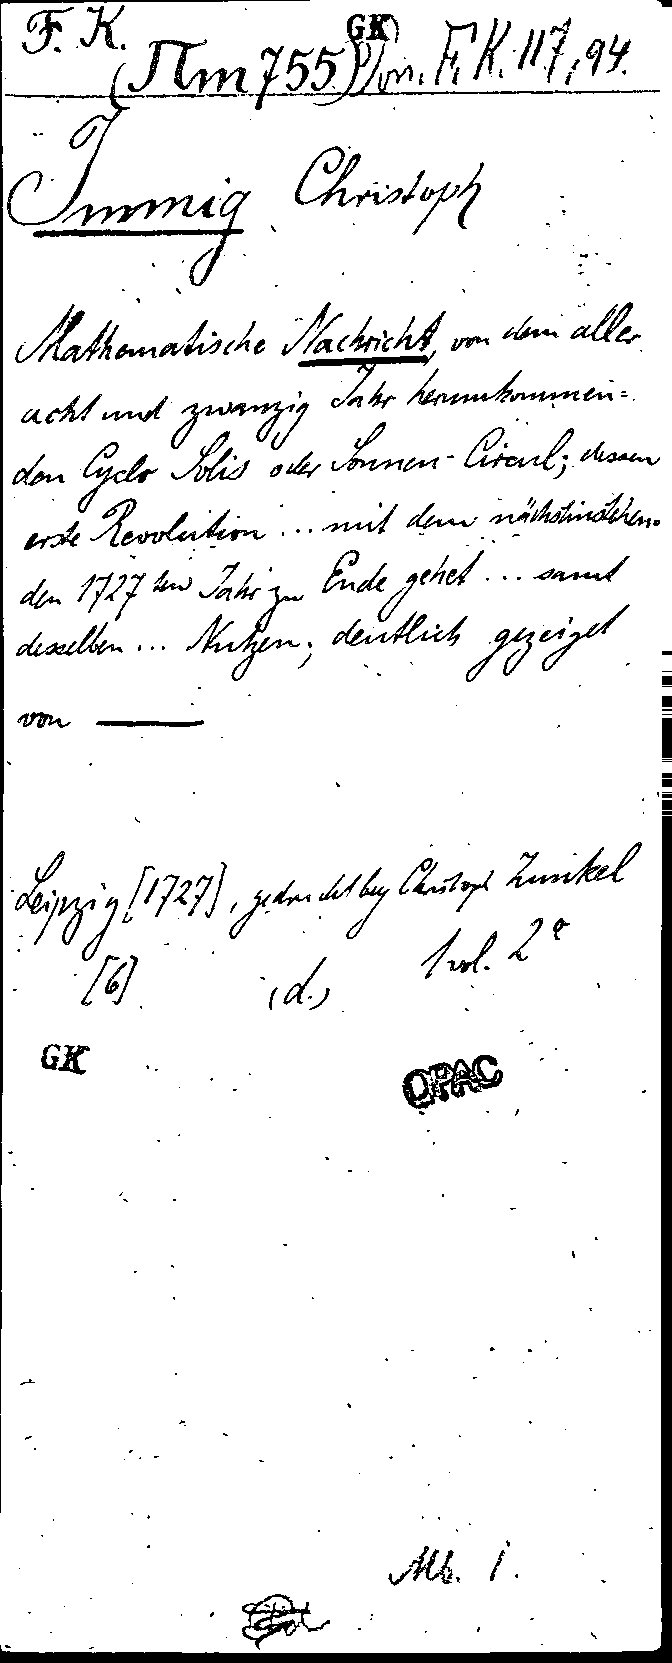 F. K.
GK
(Πm 755) Von. F. K. 117, 94.
Immig Christoph
Mathematische Nachricht, von dem aller
acht und zwanzig Jahr herumkommen=
den Cyclo Solis oder Sonnen-Circul; dessen
erste Revolution ... mit dem nächstinstehen=
den 1727ten Jahr zu Ende gehet ... samt
desselben ... Nutzen; deutlich gezeiget
von ———
Leipzig [1727], gedruckt bey Christoph Zunkel
[6] (d.) 1 vol. 2°
GK
OPAC
Mb. 1.